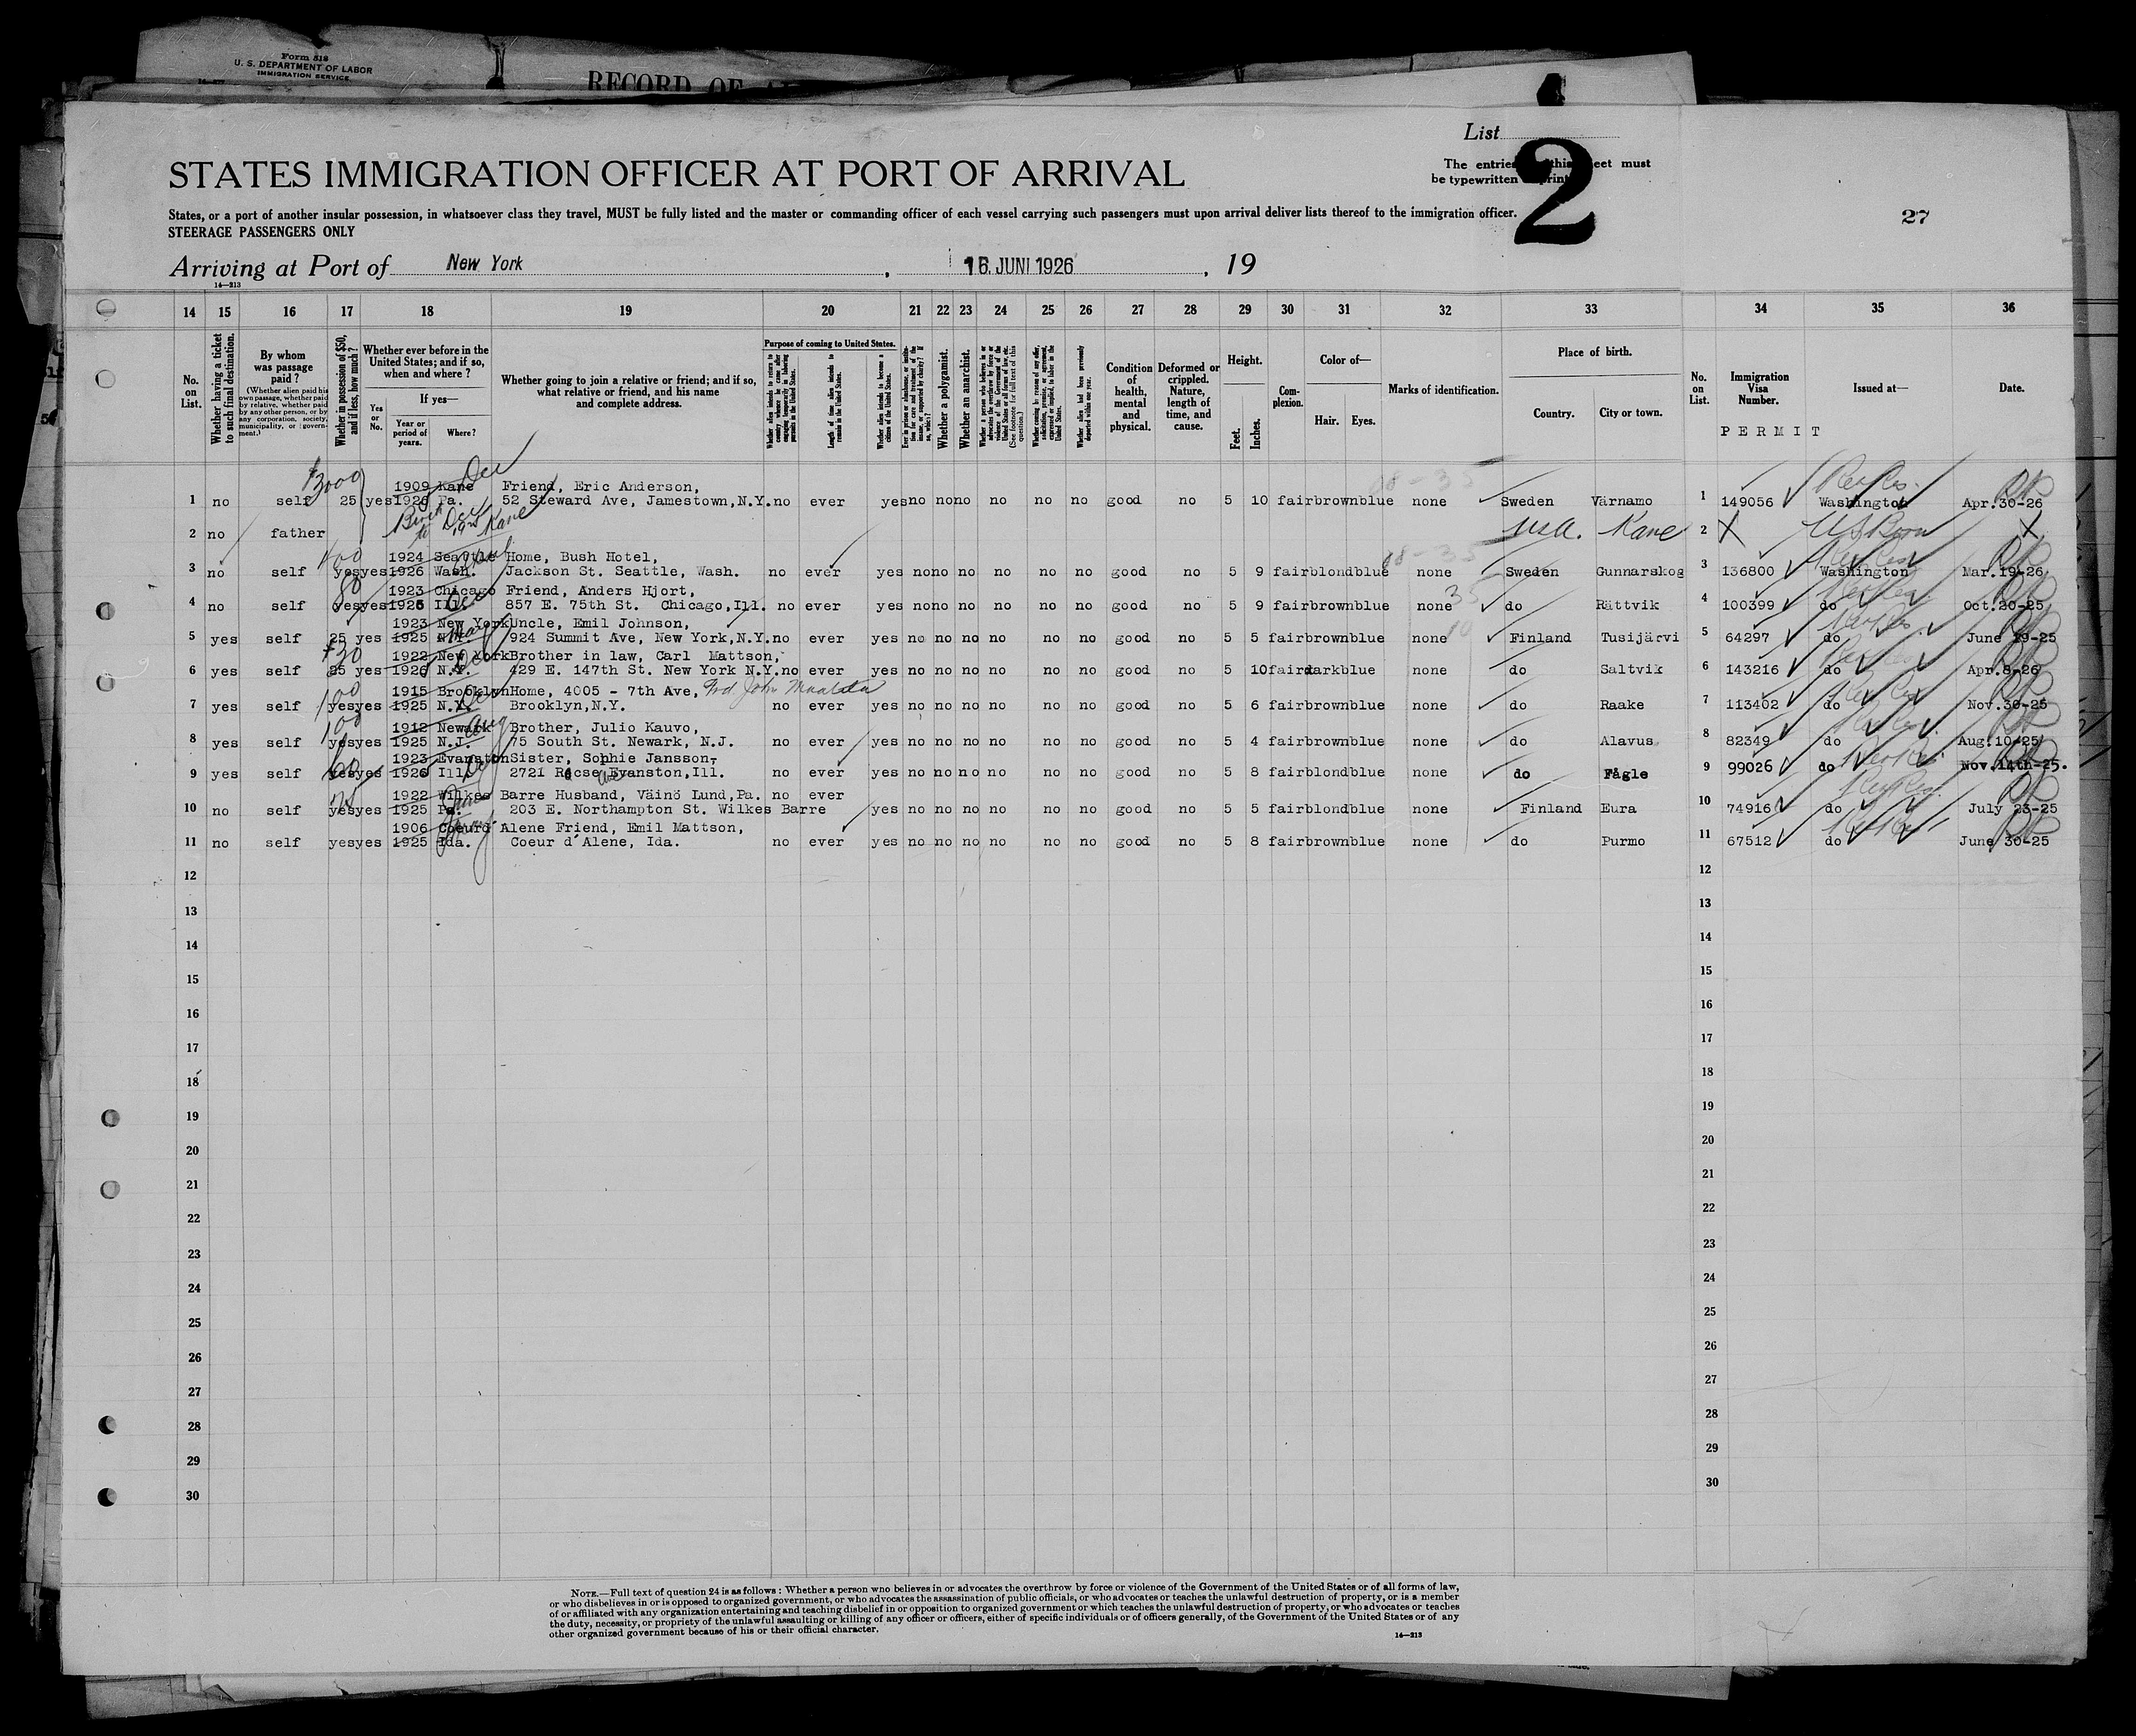 Form 518
U. S. DEPARTMENT OF LABOR
IMMIGRATION SERVICE
RECORD OF
List
2
The entries this sheet must
be typewritten print
STATES IMMIGRATION OFFICER AT PORT OF ARRIVAL
States, or a port of another insular possession, in whatsoever class they travel, MUST be fully listed and the master or commanding officer of each vessel carrying such passengers must upon arrival deliver lists thereof to the immigration officer.
STEERAGE PASSENGERS ONLY
27
Arriving at Port of New York, 16. JUNI 1926, 19
14—213
14 15 16 17 18 19 20 21 22 23 24 25 26 27 28 29 30 31 32 33 34 35 36
No. on List.
Whether having a ticket to such final destination.
By whom was passage paid?
(Whether alien paid his own passage, whether paid by relative, whether paid by any other person, or by any corporation, society, municipality, or government.)
Whether in possession of $50, and if less, how much?
Whether ever before in the United States; and if so, when and where?
Yes or No.
If yes—
Year or period of years.
Where?
Whether going to join a relative or friend; and if so, what relative or friend, and his name and complete address.
Purpose of coming to United States.
Whether alien intends to return to country whence he came after engaging temporarily in laboring pursuits in the United States.
Length of time alien intends to remain in the United States.
Whether alien intends to become a citizen of the United States.
Ever in prison or almshouse, or institution for care and treatment of the insane, or supported by charity? If so, which?
Whether a polygamist.
Whether an anarchist.
Whether a person who believes in or advocates the overthrow by force or violence of the Government of the United States or all forms of law, etc. (See footnote for full text of this question.)
Whether coming by reason of any offer, solicitation, promise, or agreement, expressed or implied, to labor in the United States.
Whether alien had been previously deported within one year.
Condition of health, mental and physical.
Deformed or crippled. Nature, length of time, and cause.
Height.
Feet. Inches.
Complexion.
Color of—
Hair. Eyes.
Marks of identification.
Place of birth.
Country. City or town.
No. on List.
Immigration Visa Number.
PERMIT
Issued at—
Date.
$3000 Dec
1909 Kane Friend, Eric Anderson,
1 no self 25 yes 1926 Pa. 52 Steward Ave, Jamestown,N.Y. no ever yes no no no no no no good no 5 10 fair brown blue none Sweden Värnamo 1 149056 Washington Apr.30-26
2 no father Birth to Dec Kane USA. Kane 2 X US Born X
100 1924 Seattle Home, Bush Hotel,
3 no self yes yes 1926 Wash. Jackson St. Seattle, Wash. no ever yes no no no no no no good no 5 9 fair blond blue none Sweden Gunnarskog 3 136800 Washington Mar.19-26
80 1923 Chicago Friend, Anders Hjort,
4 no self yes yes 1925 Ill. 857 E. 75th St. Chicago,Ill. no ever yes no no no no no no good no 5 9 fair brown blue none do Rättvik 4 100399 do Oct.20-25
1923 New York Uncle, Emil Johnson,
5 yes self 25 yes 1925 N.Y. 924 Summit Ave, New York,N.Y. no ever yes no no no no no no good no 5 5 fair brown blue none Finland Tusijärvi 5 64297 do June 19-25
$30 1922 New York Brother in law, Carl Mattson,
6 yes self 25 yes 1926 N.Y. 429 E. 147th St. New York N.Y. no ever yes no no no no no no good no 5 10 fair dark blue none do Saltvik 6 143216 do Apr.8-26
100 1915 Brooklyn Home, 4005 - 7th Ave, Frd John
7 yes self yes yes 1925 N.Y. Brooklyn,N.Y. no ever yes no no no no no no good no 5 6 fair brown blue none do Raake 7 113402 do Nov.30-25
100 1912 Newark Aug Brother, Julio Kauvo,
8 yes self yes yes 1925 N.J. 75 South St. Newark, N.J. no ever yes no no no no no no good no 5 4 fair brown blue none do Alavus 8 82349 do Aug.10-25
1923 Evanston Sister, Sophie Jansson,
9 yes self yes yes 1926 Ill. 2721 Rose Ave Evanston,Ill. no ever yes no no no no no no good no 5 8 fair blond blue none do Fågle 9 99026 do Nov.14th-25.
75 1922 Wilkes Barre Husband, Väinö Lund,Pa. no ever
10 no self yes yes 1925 Pa. 203 E. Northampton St. Wilkes Barre yes no no no no no no good no 5 5 fair blond blue none Finland Eura 10 74916 do July 23-25
1906 Coeurd Alene Friend, Emil Mattson,
11 no self yes yes 1925 Ida. Coeur d'Alene, Ida. no ever yes no no no no no no good no 5 8 fair brown blue none do Purmo 11 67512 do June 30-25
12 12
13 13
14 14
15 15
16 16
17 17
18 18
19 19
20 20
21 21
22 22
23 23
24 24
25 25
26 26
27 27
28 28
29 29
30 30
NOTE.—Full text of question 24 is as follows: Whether a person who believes in or advocates the overthrow by force or violence of the Government of the United States or of all forms of law,
or who disbelieves in or is opposed to organized government, or who advocates the assassination of public officials, or who advocates or teaches the unlawful destruction of property, or is a member
of or affiliated with any organization entertaining and teaching disbelief in or opposition to organized government or which teaches the unlawful destruction of property, or who advocates or teaches
the duty, necessity, or propriety of the unlawful assaulting or killing of any officer or officers, either of specific individuals or of officers generally, of the Government of the United States or of any
other organized government because of his or their official character.
14—213